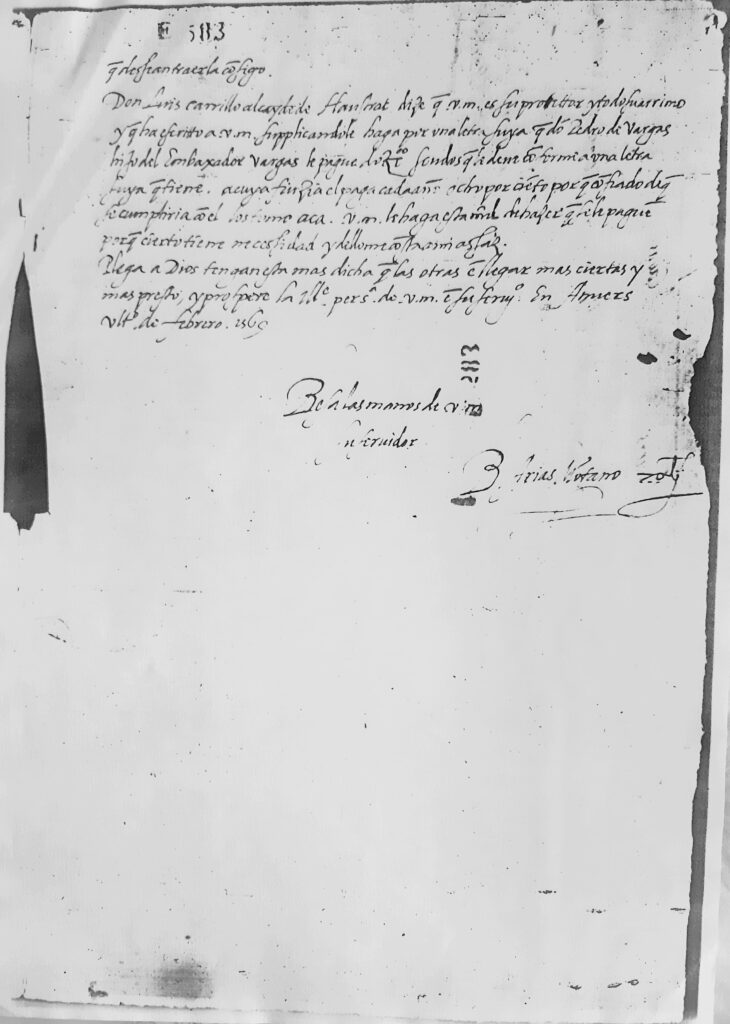 E 583
q̃ dessean traerla cõsigo.
Don Luis carrillo alcayde de Haustrat dize q̃ v.m. es su protettor y todo su arrimo
y q̃ ha escrito a v.m. supplicandole haga por una letra suya q̃ dõ Pedro de Vargas
hijo del Embaxador Vargas le pague escudos q̃ le deve cõforme a una letra
suya q̃ tiene. a cuya el paga cada año ocho por ciẽto por q̃ cõfiado de q̃
se cumpliria cõ el aca. v.m. le haga esta mrd̃ de hazer q̃ se le pague
porq̃ cierto tiene necessidad y dello me costa a mi assaz.
Plega a Dios tengan esta mas dicha q̃ las otras ẽ llegar mas ciertas y
mas presto, y prospere la Ill.e pers.a de v.m. ẽ su serui.o En Anvers
vlt.o de febrero. 1569
283
Besa las manos de v.m.
su seruidor
B. Arias Montano